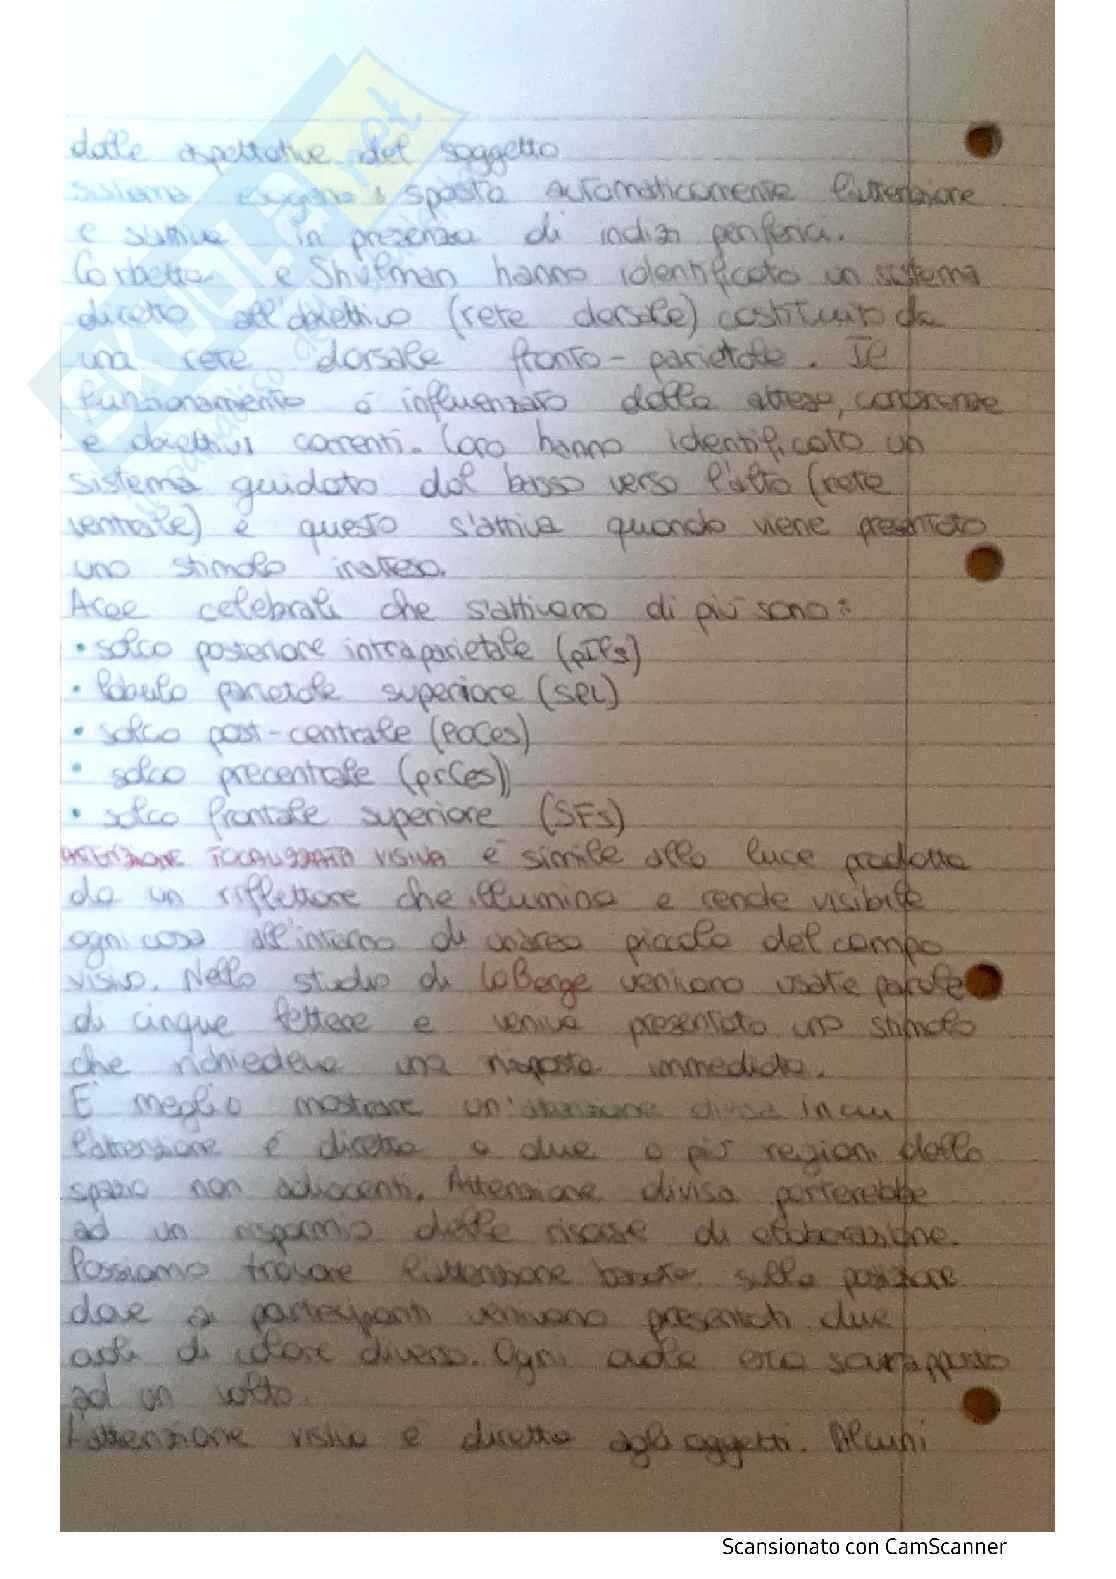 dalle aspettative del soggetto
sistema esogeno: sposta automaticamente l'attenzione
e s'attiva in presenza di indizi periferici.
Corbetta e Shulman hanno identificato un sistema
diretto all'obiettivo (rete dorsale) costituito da
una rete dorsale fronto-parietale. Il
funzionamento è influenzato dalla attese, conoscenze
e obiettivi correnti. Loro hanno identificato un
sistema guidato dal basso verso l'alto (rete
ventrale) e questo s'attiva quando viene presentato
uno stimolo inatteso.
Aree celebrali che s'attivano di più sono:
• solco posteriore intraparietale (pIPs)
• lobulo parietale superiore (SPL)
• solco post-centrale (PoCes)
• solco precentrale (prCes)
• solco frontale superiore (SFs)
ATTENZIONE FOCALIZZATA VISIVA è simile alla luce prodotta
da un riflettore che illumina e rende visibile
ogni cosa all'interno di un'area piccola del campo
visivo. Nello studio di LaBerge venivano usate parole
di cinque lettere e veniva presentato uno stimolo
che richiedeva una risposta immediata.
È meglio mostrare un'attenzione divisa in cui
l'attenzione è diretta a due o più regioni dello
spazio non adiacenti. Attenzione divisa porterebbe
ad un risparmio delle risorse di elaborazione.
Possiamo trovare l'attenzione basata sulla posizione
dove ai partecipanti venivano presentati due
ovali di colore diverso. Ogni ovale era sovrapposto
ad un volto.
L'attenzione visiva è diretta agli oggetti. Alcuni
Scansionato con CamScanner